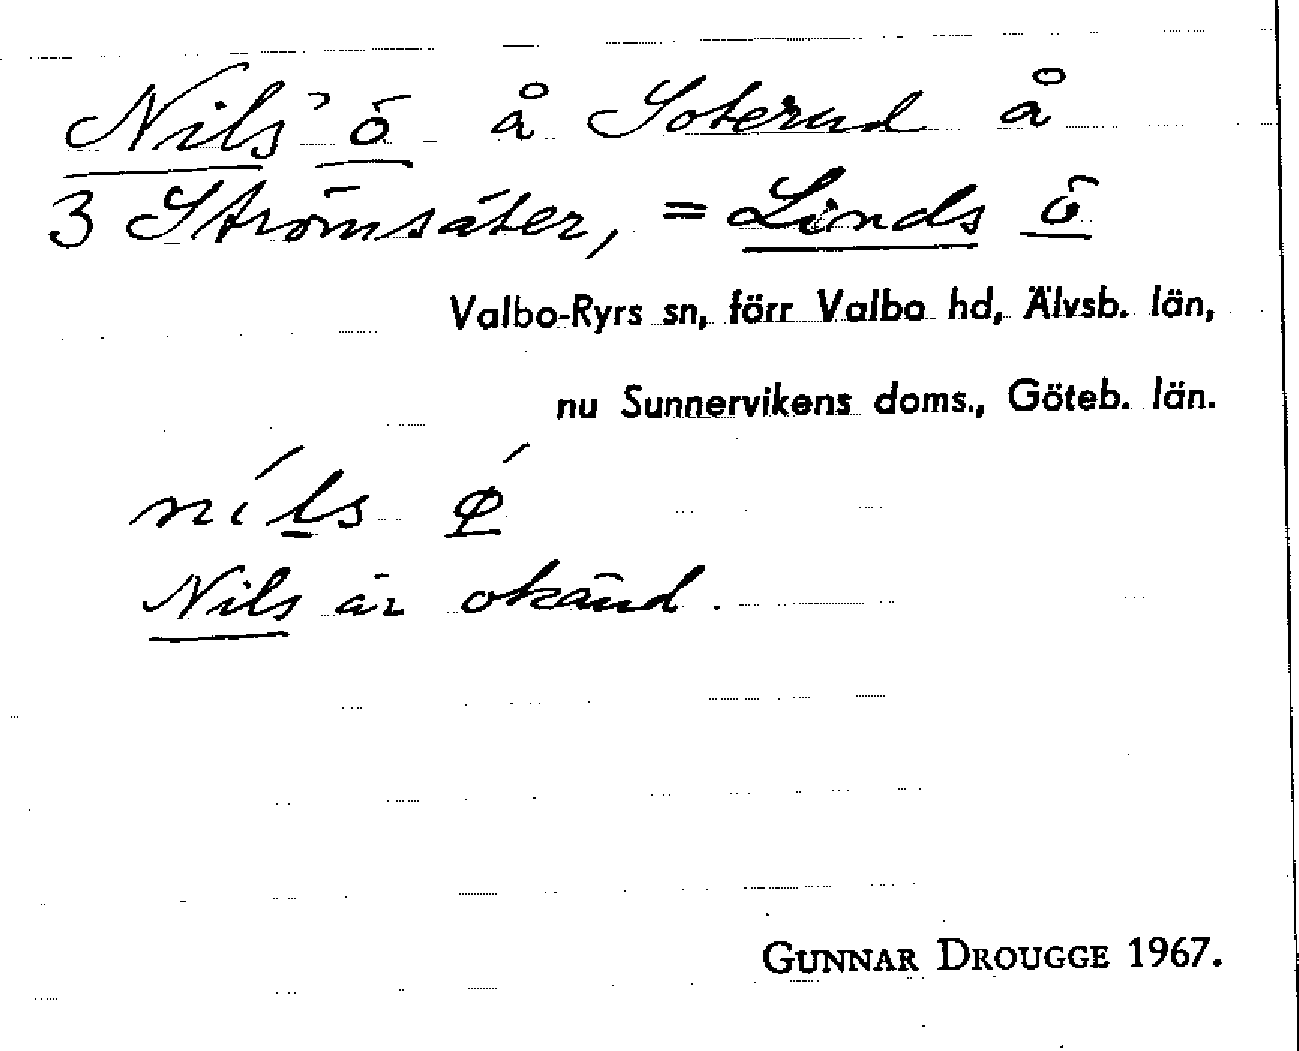 Nils' ö å Soterud å
3 Strömsäter, = Linds ö
Valbo-Ryrs sn, förr Valbo hd, Älvsb. län,
nu Sunnervikens doms., Göteb. län.
níls ǿ
Nils är okänd.
GUNNAR DROUGGE 1967.